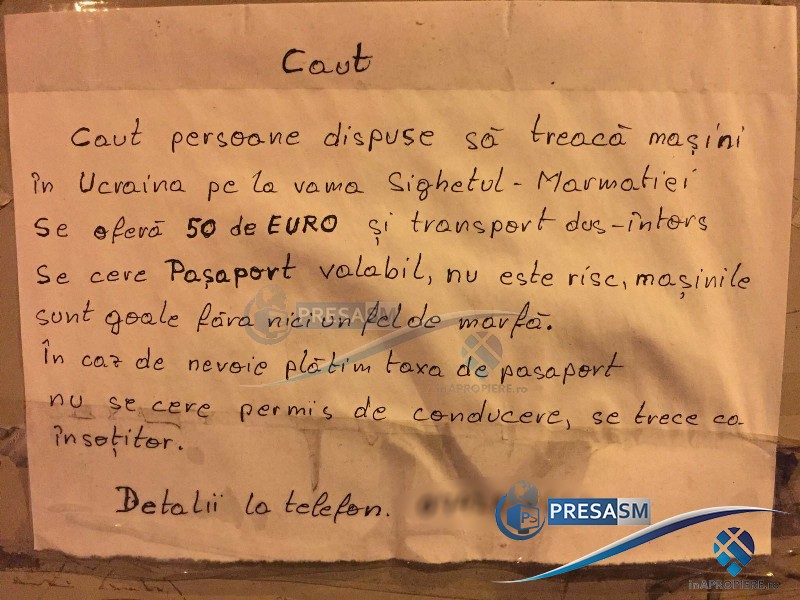 Caut
Caut persoane dispuse să treacă mașini
în Ucraina pe la vama Sighetul - Marmatiei
Se oferă 50 de EURO și transport dus-întors
Se cere Pașaport valabil, nu este risc, mașinile
sunt goale fără nici un fel de marfă.
PRESASM
În caz de nevoie plătim taxa de pasaport
inAPROPIERE.ro
nu se cere permis de conducere, se trece ca
însoțitor.
Detalii la telefon.
PS PRESASM
inAPROPIERE.ro